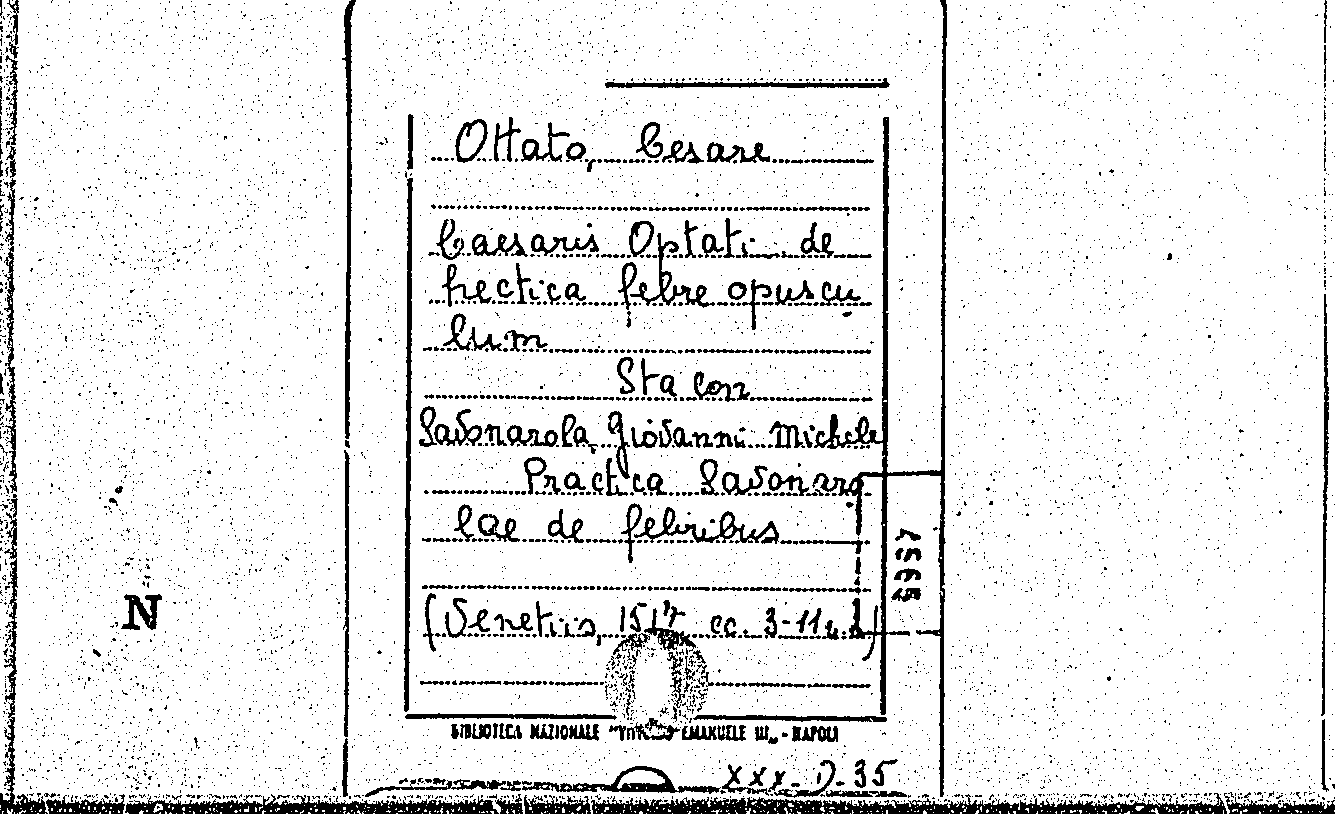 Ottato, Cesare
Caesaris Optati de
hectica febre opuscu
lum
Sta con
Savonarola Giovanni Michele
Practica Savonaro
lae de febribus
(Venetiis, 1517 cc. 3-11
BIBLIOTECA NAZIONALE "VITTORIO EMANUELE III" - NAPOLI
XXX-D-35
N